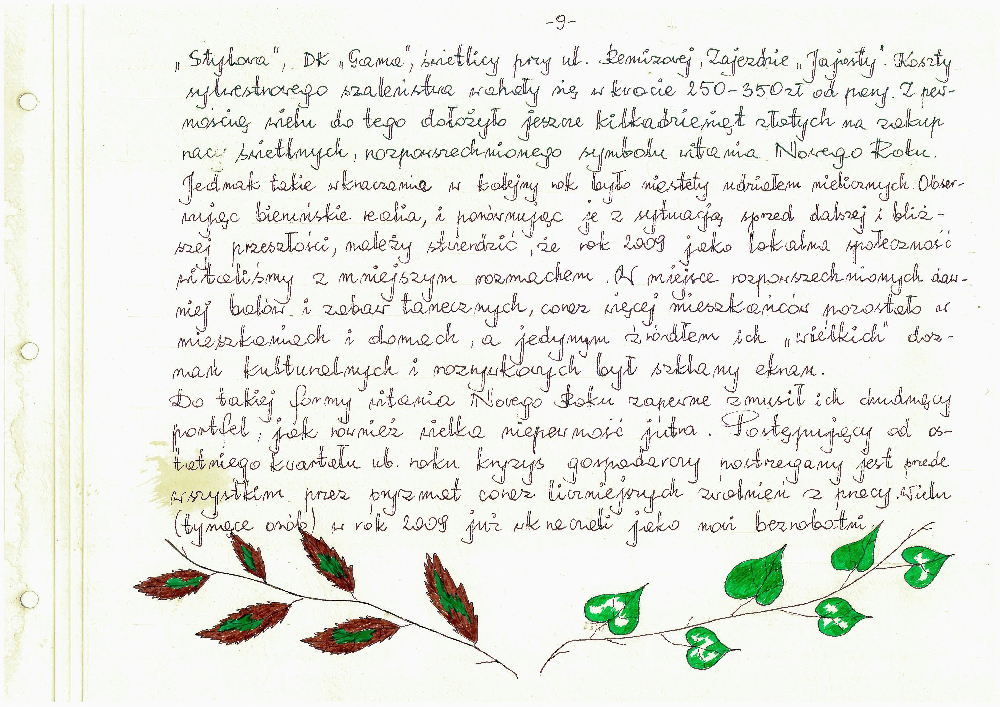 -9-
„Stylowa", DK „Gama", świetlicy przy ul. Remizowej, Zajeździe „Jajosty". Koszty
sylwestrowego szaleństwa wahały się w kwocie 250-350 zł od pary. Z pew-
nością wielu do tego dołożyło jeszcze kilkadziesiąt złotych na zakup
rac świetlnych, rozpowszechnionego symbolu witania Nowego Roku.
Jednak takie wkraczanie w kolejny rok było niestety udziałem nielicznych. Obser-
wując bieruńskie realia, i porównując je z sytuacją sprzed dalszej i bliż-
szej przeszłości, należy stwierdzić, że rok 2009 jako lokalna społeczność
witaliśmy z mniejszym rozmachem. W miejsce rozpowszechnionych daw-
niej balów i zabaw tanecznych, coraz więcej mieszkańców pozostało w
mieszkaniach i domach, a jedynym źródłem ich „wielkich" doz-
nań kulturalnych i rozrywkowych był szklany ekran.
Do takiej formy witania Nowego Roku zapewne zmusił ich chudnący
portfel, jak również wielka niepewność jutra. Postępujący od os-
tatniego kwartału ub. roku kryzys gospodarczy postrzegany jest przede
wszystkim przez pryzmat coraz liczniejszych zwolnień z pracy. Wielu
(tysiące osób) w rok 2009 już wkraczali jako nowi bezrobotni.